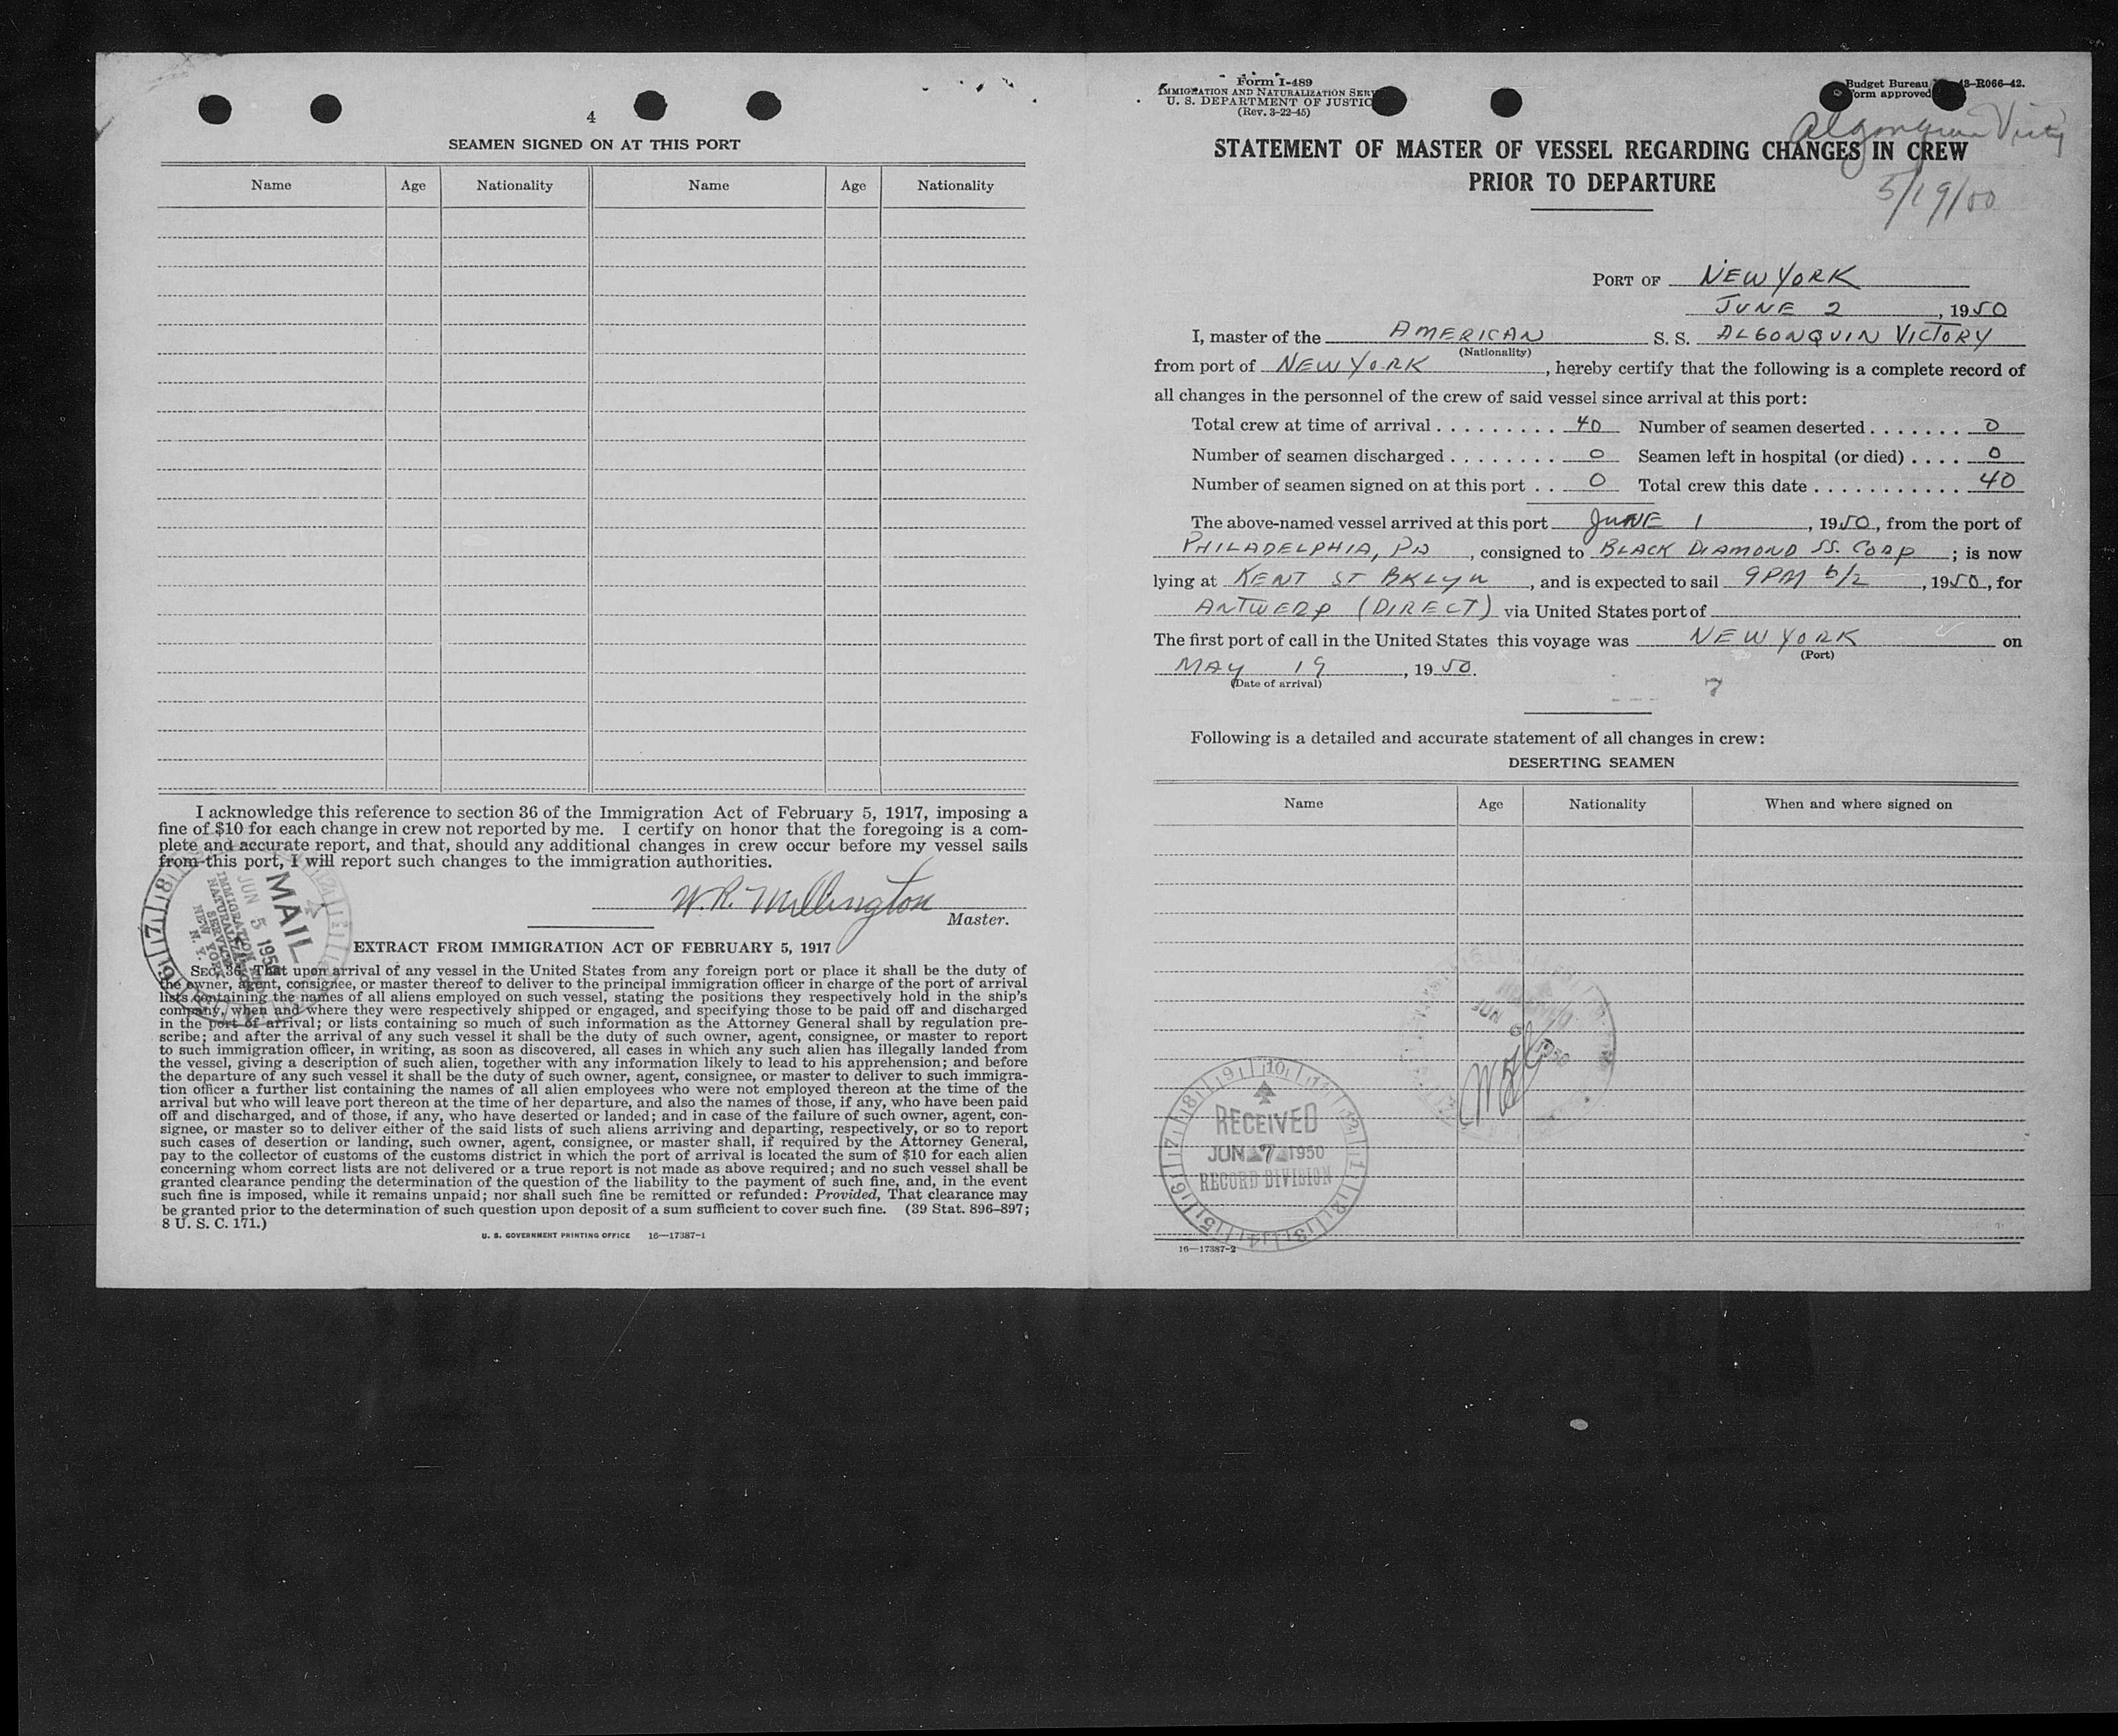 4
SEAMEN SIGNED ON AT THIS PORT
Name Age Nationality Name Age Nationality
I acknowledge this reference to section 36 of the Immigration Act of February 5, 1917, imposing a
fine of $10 for each change in crew not reported by me. I certify on honor that the foregoing is a com-
plete and accurate report, and that, should any additional changes in crew occur before my vessel sails
from this port, I will report such changes to the immigration authorities.
W. R. Millington
Master.
MAIL
JUN 5 1950
IMMIGRATION AND
NATURALIZATION
SERVICE
NEW YORK
N. Y.
EXTRACT FROM IMMIGRATION ACT OF FEBRUARY 5, 1917
SEC. 36. That upon arrival of any vessel in the United States from any foreign port or place it shall be the duty of
the owner, agent, consignee, or master thereof to deliver to the principal immigration officer in charge of the port of arrival
lists containing the names of all aliens employed on such vessel, stating the positions they respectively hold in the ship's
company, when and where they were respectively shipped or engaged, and specifying those to be paid off and discharged
in the port of arrival; or lists containing so much of such information as the Attorney General shall by regulation pre-
scribe; and after the arrival of any such vessel it shall be the duty of such owner, agent, consignee, or master to report
to such immigration officer, in writing, as soon as discovered, all cases in which any such alien has illegally landed from
the vessel, giving a description of such alien, together with any information likely to lead to his apprehension; and before
the departure of any such vessel it shall be the duty of such owner, agent, consignee, or master to deliver to such immigra-
tion officer a further list containing the names of all alien employees who were not employed thereon at the time of the
arrival but who will leave port thereon at the time of her departure, and also the names of those, if any, who have been paid
off and discharged, and of those, if any, who have deserted or landed; and in case of the failure of such owner, agent, con-
signee, or master so to deliver either of the said lists of such aliens arriving and departing, respectively, or so to report
such cases of desertion or landing, such owner, agent, consignee, or master shall, if required by the Attorney General,
pay to the collector of customs of the customs district in which the port of arrival is located the sum of $10 for each alien
concerning whom correct lists are not delivered or a true report is not made as above required; and no such vessel shall be
granted clearance pending the determination of the question of the liability to the payment of such fine, and, in the event
such fine is imposed, while it remains unpaid; nor shall such fine be remitted or refunded: Provided, That clearance may
be granted prior to the determination of such question upon deposit of a sum sufficient to cover such fine. (39 Stat. 896–897;
8 U. S. C. 171.)
U. S. GOVERNMENT PRINTING OFFICE 16—17387-1
Form I-489
IMMIGRATION AND NATURALIZATION SER
U. S. DEPARTMENT OF JUSTIC
(Rev. 3-22-45)
Budget Bureau 43-R066-42.
Form approved
Algonquin Victy
5/19/50
STATEMENT OF MASTER OF VESSEL REGARDING CHANGES IN CREW
PRIOR TO DEPARTURE
PORT OF NEW YORK
JUNE 2, 1950
I, master of the AMERICAN S. S. ALGONQUIN VICTORY
(Nationality)
from port of NEW YORK, hereby certify that the following is a complete record of
all changes in the personnel of the crew of said vessel since arrival at this port:
Total crew at time of arrival . . . . . . . . . 40 Number of seamen deserted . . . . . . . 0
Number of seamen discharged . . . . . . . . 0 Seamen left in hospital (or died) . . . . 0
Number of seamen signed on at this port . . 0 Total crew this date . . . . . . . . . . . 40
The above-named vessel arrived at this port JUNE 1, 1950, from the port of
PHILADELPHIA, PA, consigned to BLACK DIAMOND SS. CORP; is now
lying at KENT ST BKLYN, and is expected to sail 9PM 6/2, 1950, for
ANTWERP (DIRECT) via United States port of
The first port of call in the United States this voyage was NEW YORK on
(Port)
MAY 19, 1950.
(Date of arrival)
7
Following is a detailed and accurate statement of all changes in crew:
DESERTING SEAMEN
Name Age Nationality When and where signed on
JUN 6 1950
RECEIVED
JUN 7 1950
RECORD DIVISION
16—17387-2